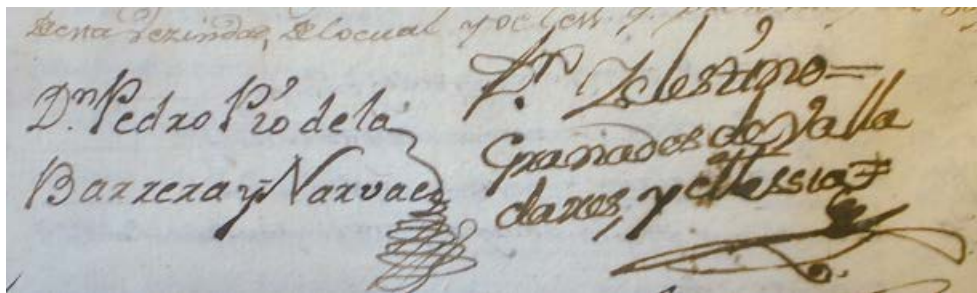 Dn. Pedro Pío de la
Barrera y Narvaez
Dn. Zelestino
Granados de Valla
dares, y Messia